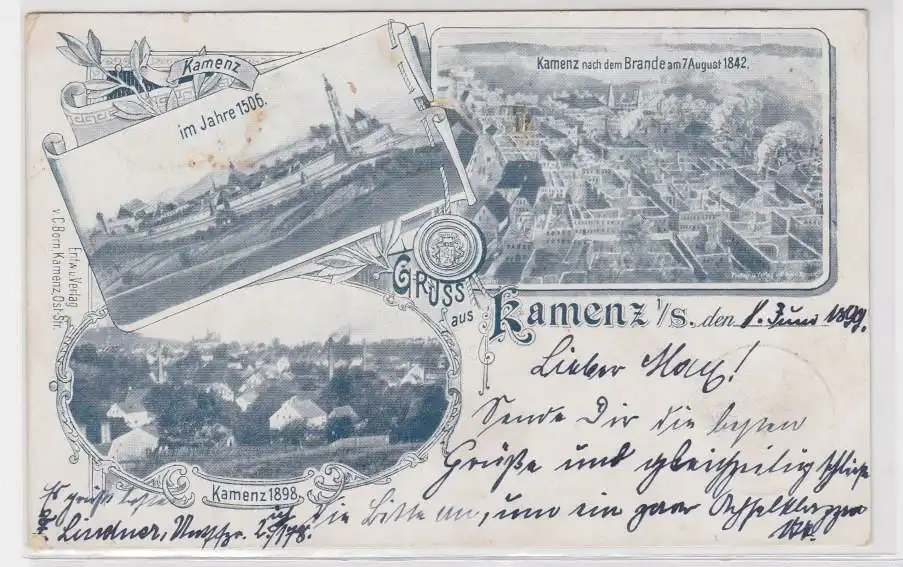 Kamenz
im Jahre 1506.
Kamenz nach dem Brande am 7 August 1842.
Entw. u. Verlag
v. C. Born, Kamenz, Ost-Str.
Gruss
aus
Kamenz i/S. den 8. Juni 1899.
Lieber Max!
Sende Dir die besten
Grüße und gleichzeitig schließe
ich die Bitte an, um ein paar
Kamenz 1898.
Es grüßt
Lindner,